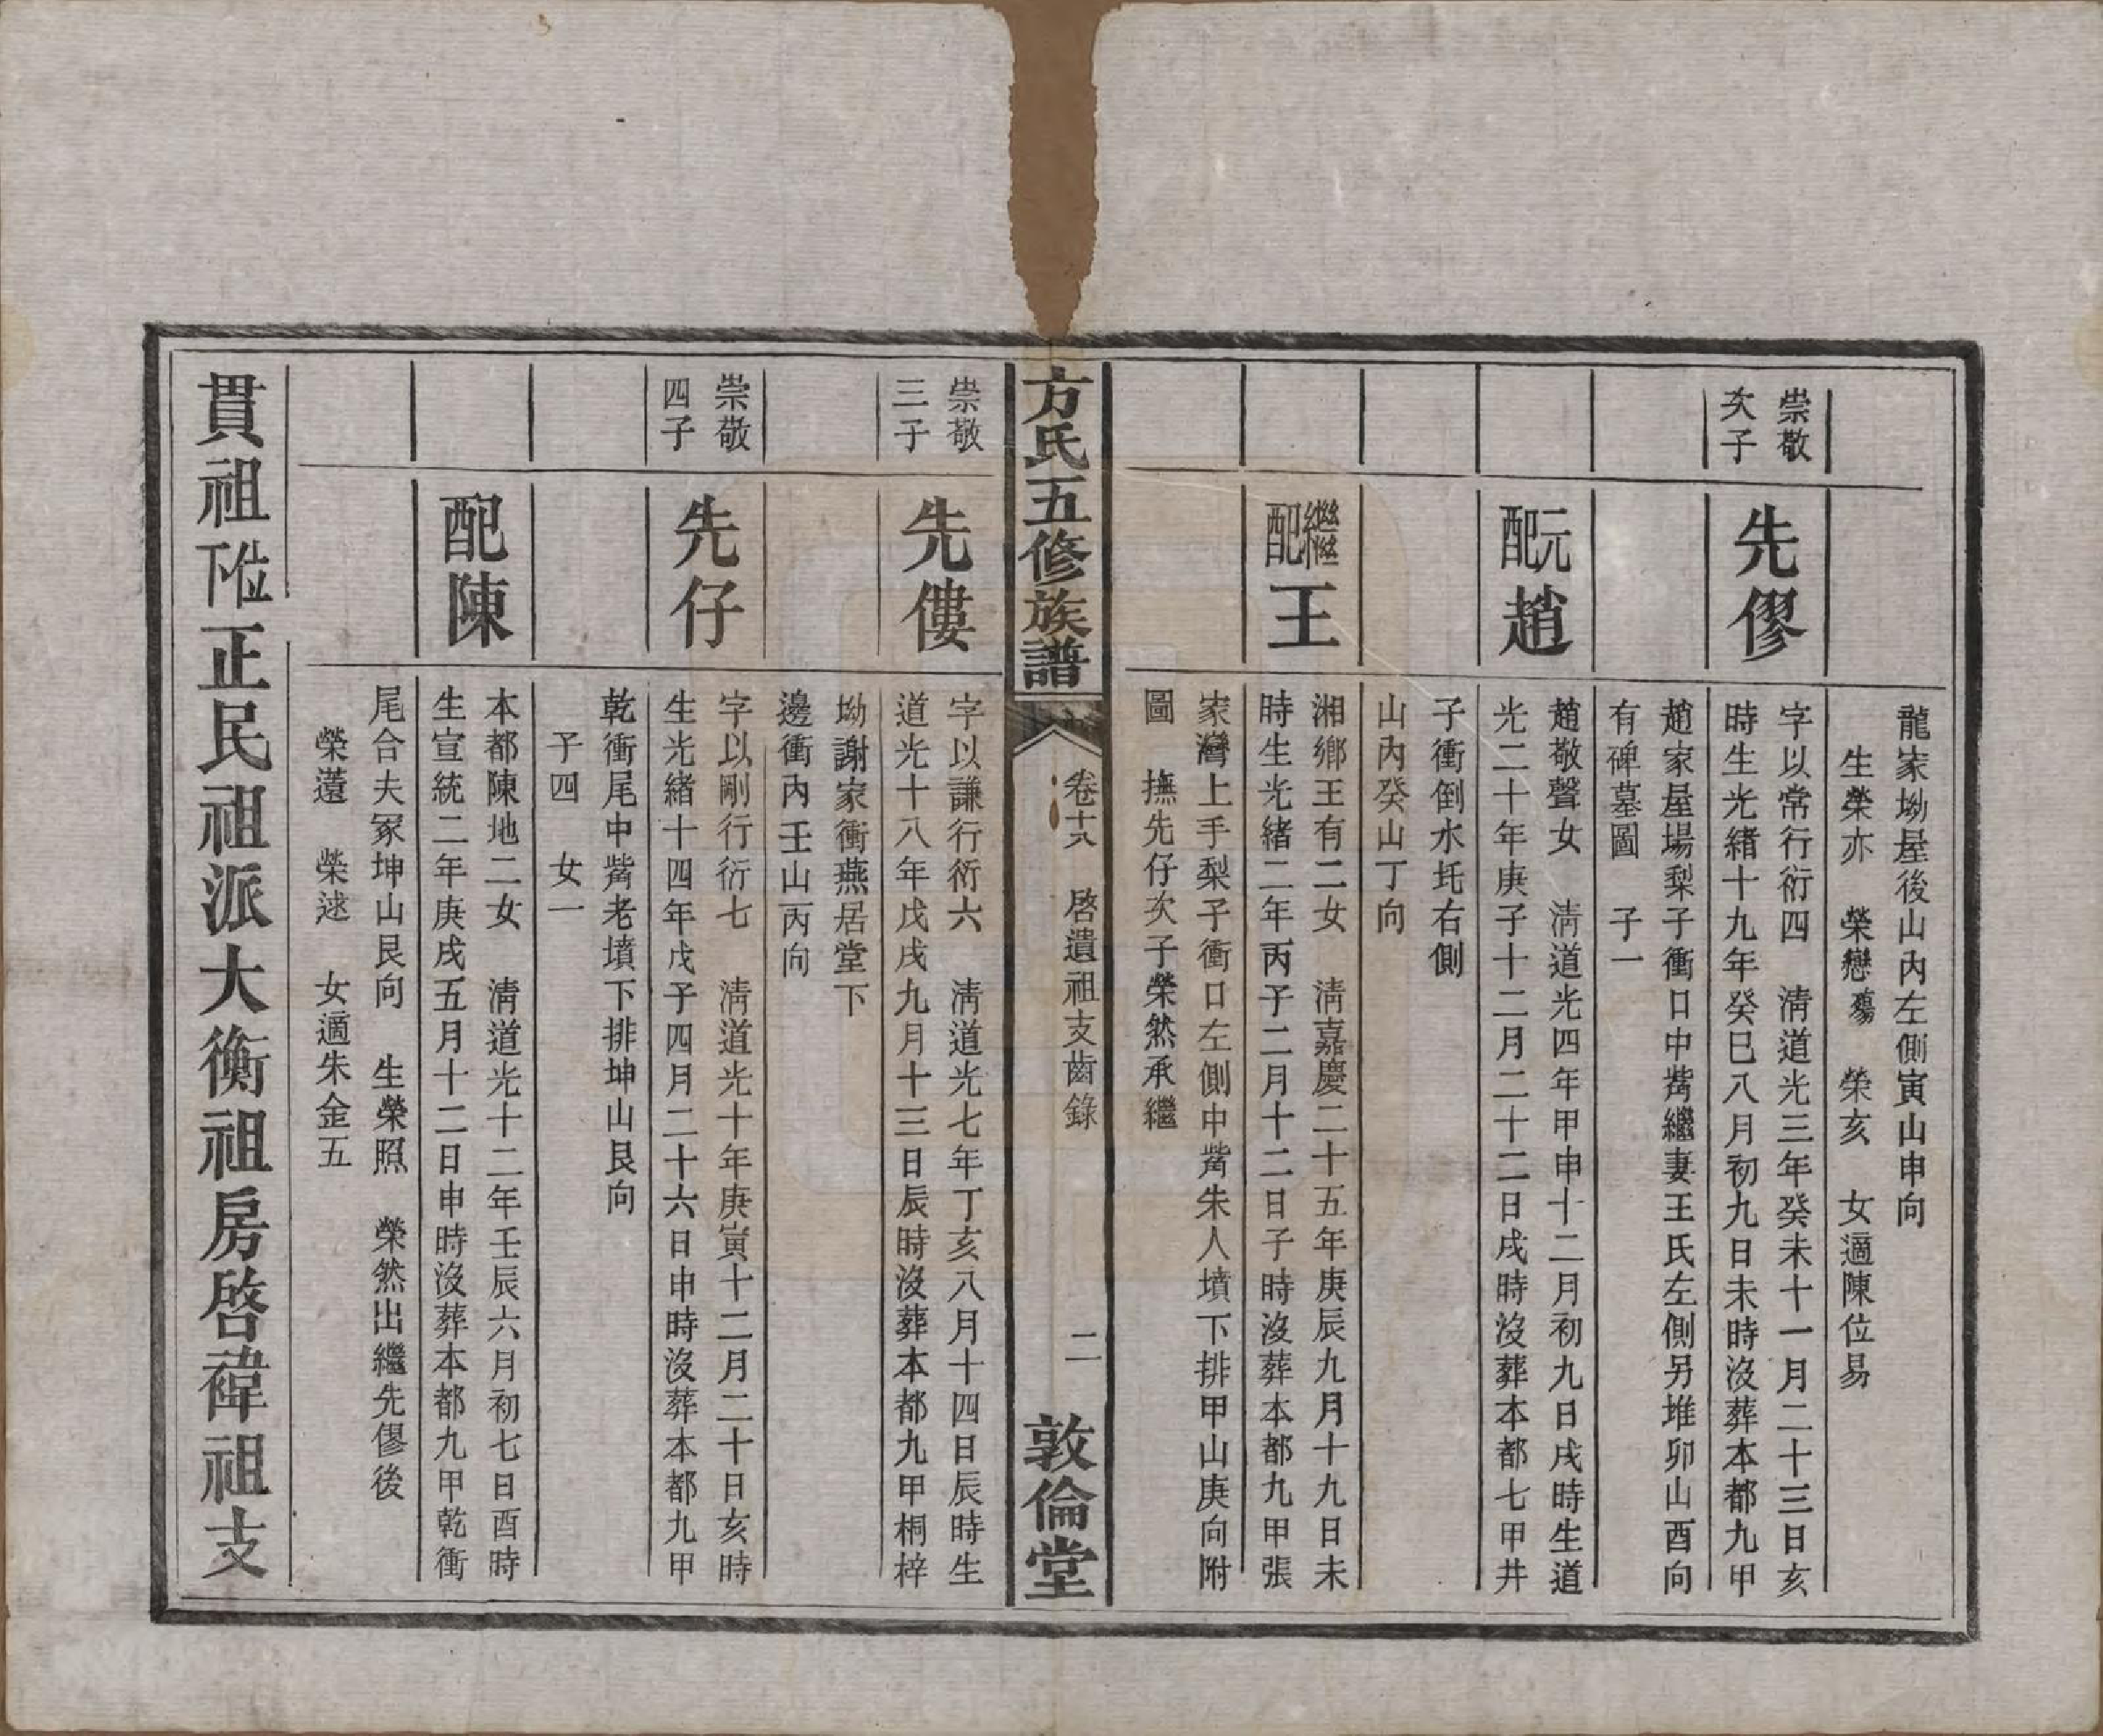 龍家坳屋後山內左側寅山申向
生榮亦　榮戀殤　榮亥　女適陳位易
崇敬
次子
先僇
字以常行衍四　清道光三年癸未十一月二十三日亥
時生光緒十九年癸巳八月初九日未時沒葬本都九甲
趙家屋場梨子衝口中觜繼妻王氏左側另堆卯山酉向
有碑墓圖　子一
元配
趙
趙敬聲女　清道光四年甲申十二月初九日戌時生道
光二十年庚子十二月二十二日戌時沒葬本都七甲井
子衝倒水圫右側
山內癸山丁向
繼配
王
湘鄉王有二女　清嘉慶二十五年庚辰九月十九日未
時生光緒二年丙子二月十二日子時沒葬本都九甲張
家灣上手梨子衝口左側中觜朱人墳下排甲山庚向附
圖　撫先仔次子榮然承繼
方氏五修族譜
卷十八　啓遺祖支齒錄
二
敦倫堂
崇敬
三子
先僂
字以謙行衍六　清道光七年丁亥八月十四日辰時生
道光十八年戊戌九月十三日辰時沒葬本都九甲桐梓
坳謝家衝燕居堂下
邊衝內壬山丙向
崇敬
四子
先仔
字以剛行衍七　清道光十年庚寅十二月二十日亥時
生光緒十四年戊子四月二十六日申時沒葬本都九甲
乾衝尾中觜老墳下排坤山艮向
子四　女一
配陳
本都陳地二女　清道光十二年壬辰六月初七日酉時
生宣統二年庚戌五月十二日申時沒葬本都九甲乾衝
尾合夫冢坤山艮向　生榮照　榮然出繼先僇後
榮藼　榮逑　女適朱金五
貫祖陞下正民祖派大衡祖房啓禕祖支